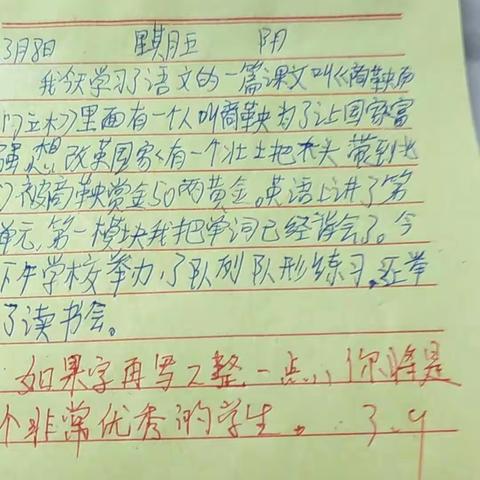 3月8日 星期五 阴
我今天学习了语文的一篇课文叫《商鞅南
门立木》里面有一个人叫商鞅为了让国家富
强,想改革国家有一个壮士把木头带到北
门被商鞅赏金50两黄金。英语上讲了第
单元,第一模块我把单词已经背会了。今
下午学校举办了队列队形练习,还举
了读书会。
如果字再写工整一点,你将是
个非常优秀的学生。 3.9